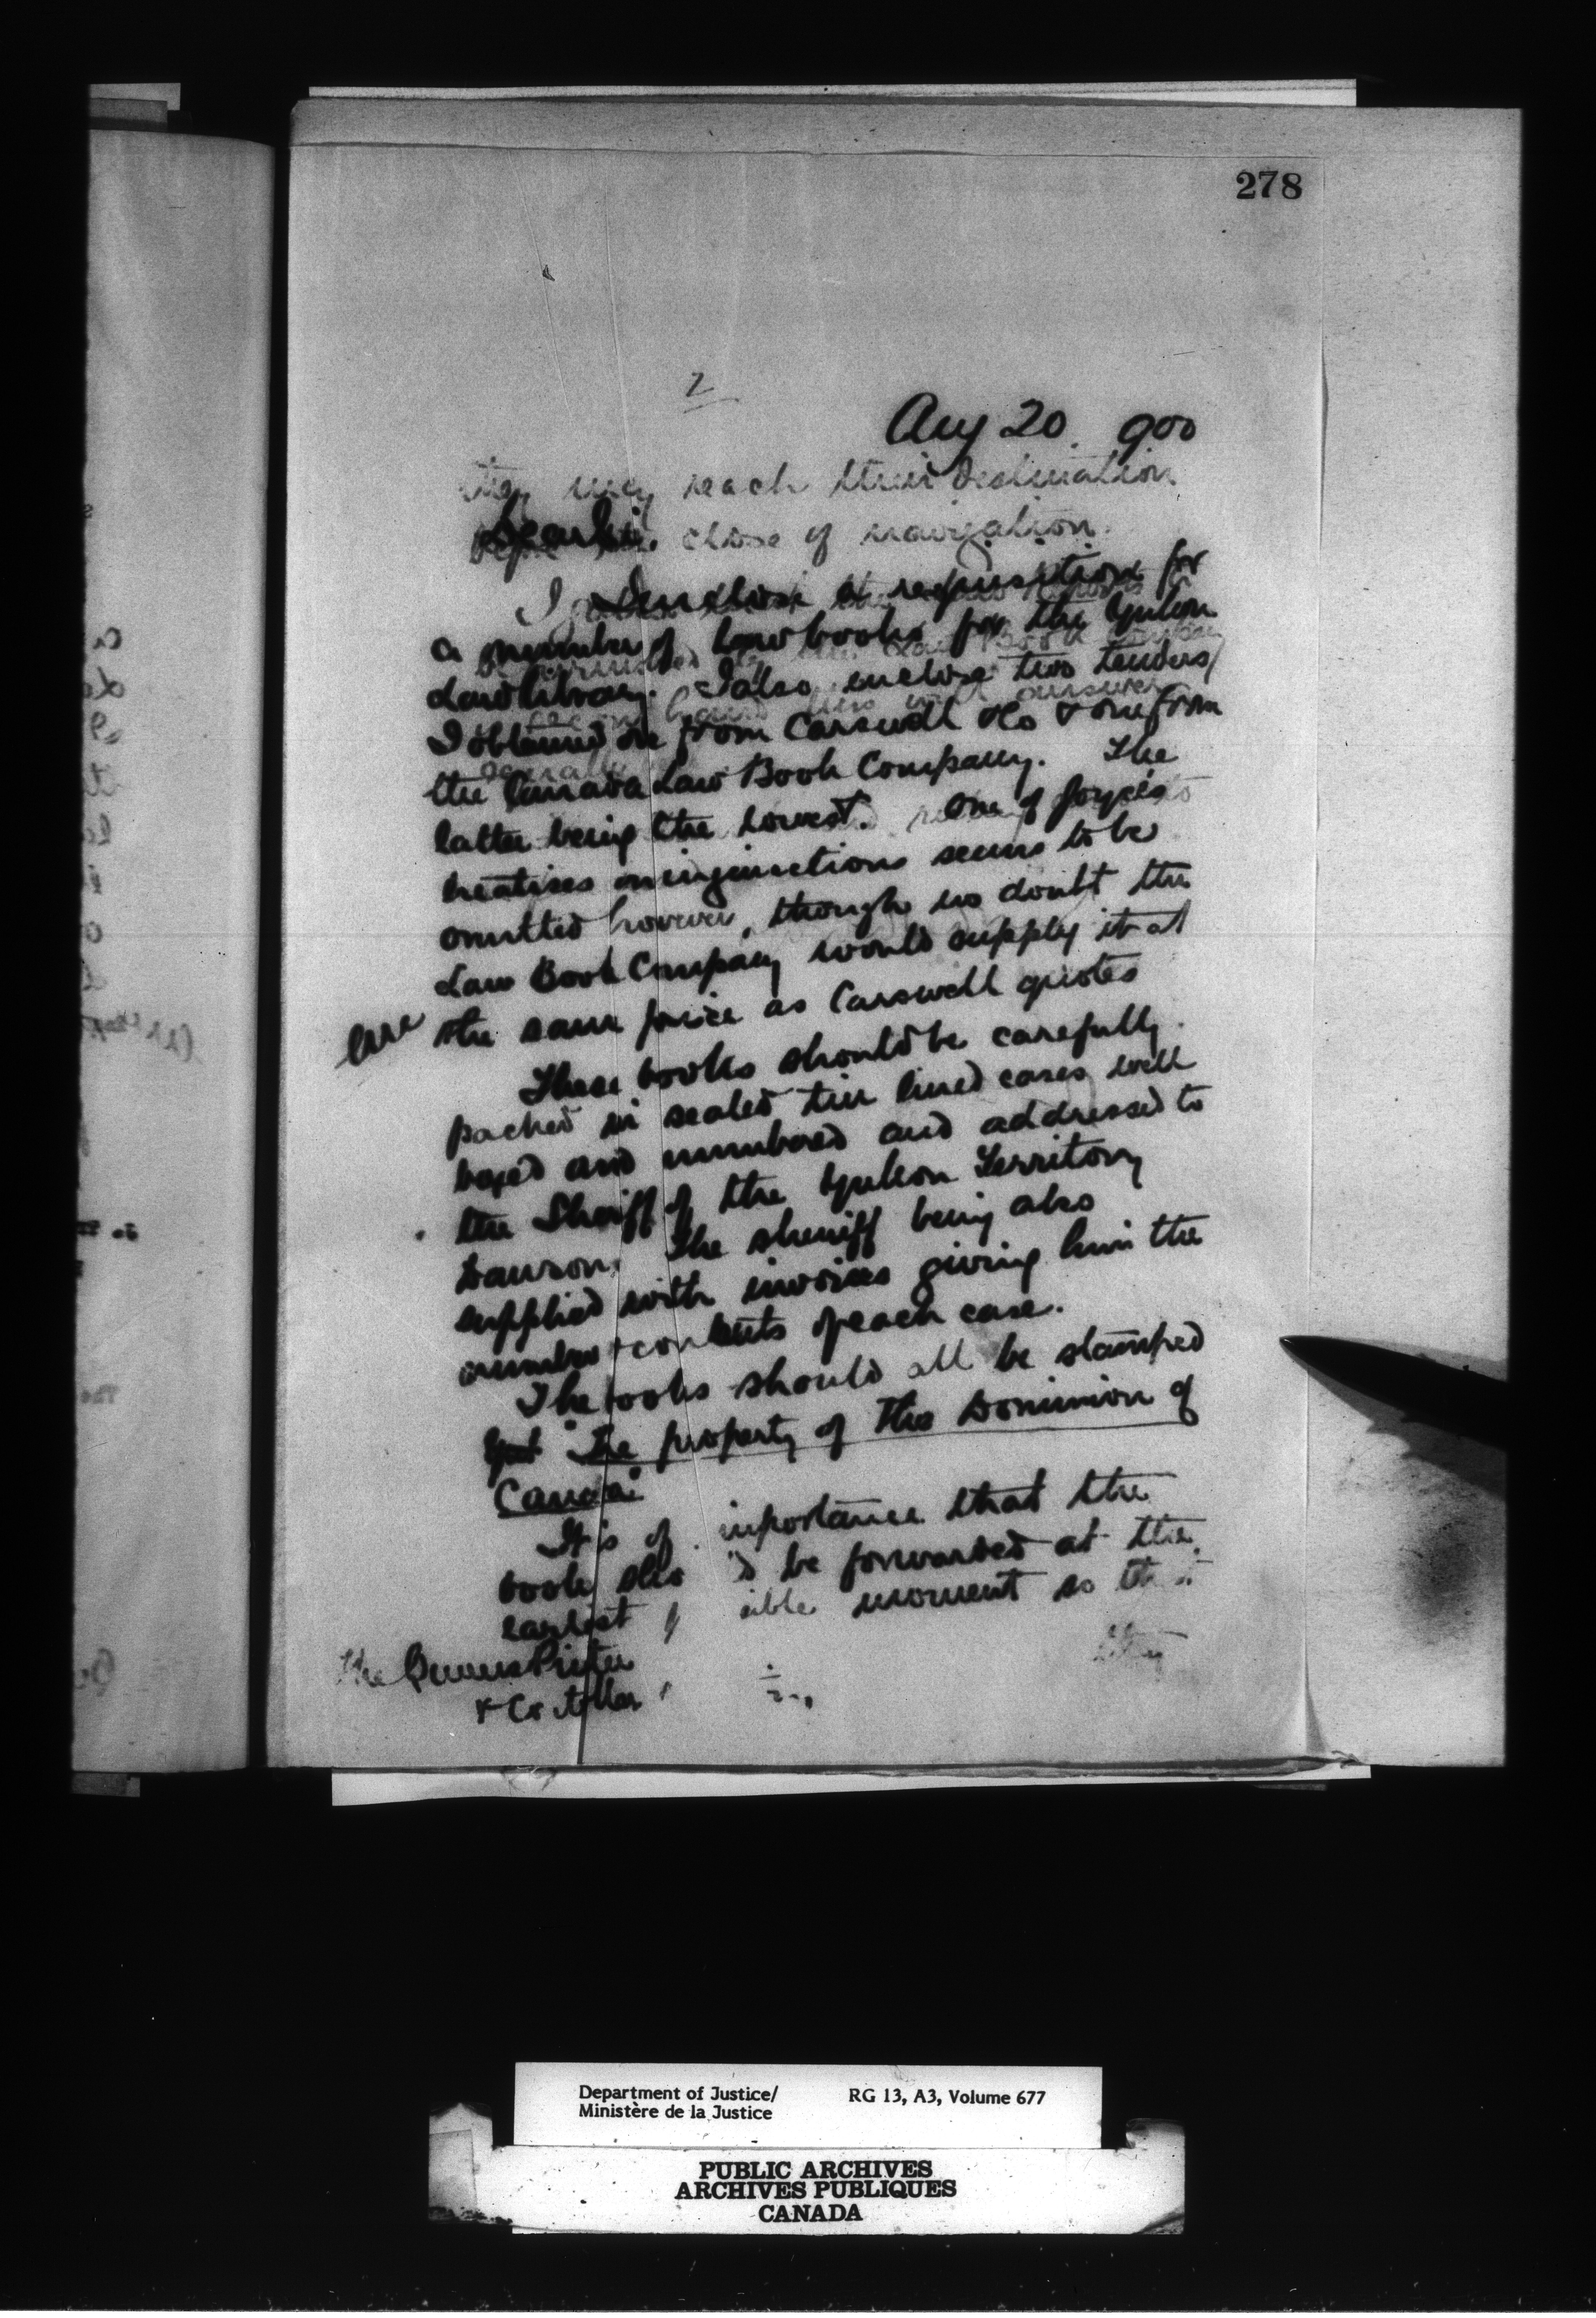 278
2
Aug 20. 900
they may reach their destination
Dear Sir.
close of navigation.
I enclose a requisition for
a number of law books for the Yukon
Law Library. I also enclose two tenders
I obtained one from Carswell & Co & one from
the Canada Law Book Company. The
latter being the lowest. One of Joyce's
treatises on injunctions seems to be
omitted however, though no doubt the
Law Book Company would supply it at
the same price as Carswell quotes
These books should be carefully
packed in sealed tin lined cases well
boxed and numbered and addressed to
the Sheriff of the Yukon Territory
Dawson. The sheriff being also
supplied with invoices giving him the
number & contents of each case.
The books should all be stamped
"The property of the Dominion of
Canada"
It is of importance that the
book be forwarded at the
earliest moment so that
they
The Queens Printer
Department of Justice/
Ministère de la Justice
RG 13, A3, Volume 677
PUBLIC ARCHIVES
ARCHIVES PUBLIQUES
CANADA